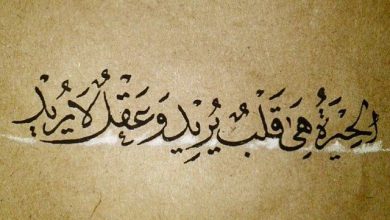 الحِيْرَةُ هِيَ قَلْبٌ يُرِيْد وَعَقْلٌ لَا يُرِيْد